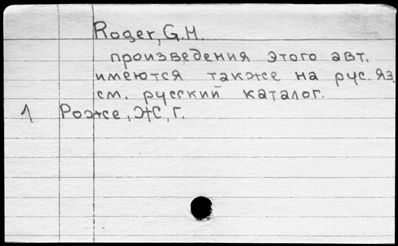 Roger, G.H.
произведения этого авт.
имеются также на рус. яз.
см. русский каталог.
1 Роже, Ж, Г.